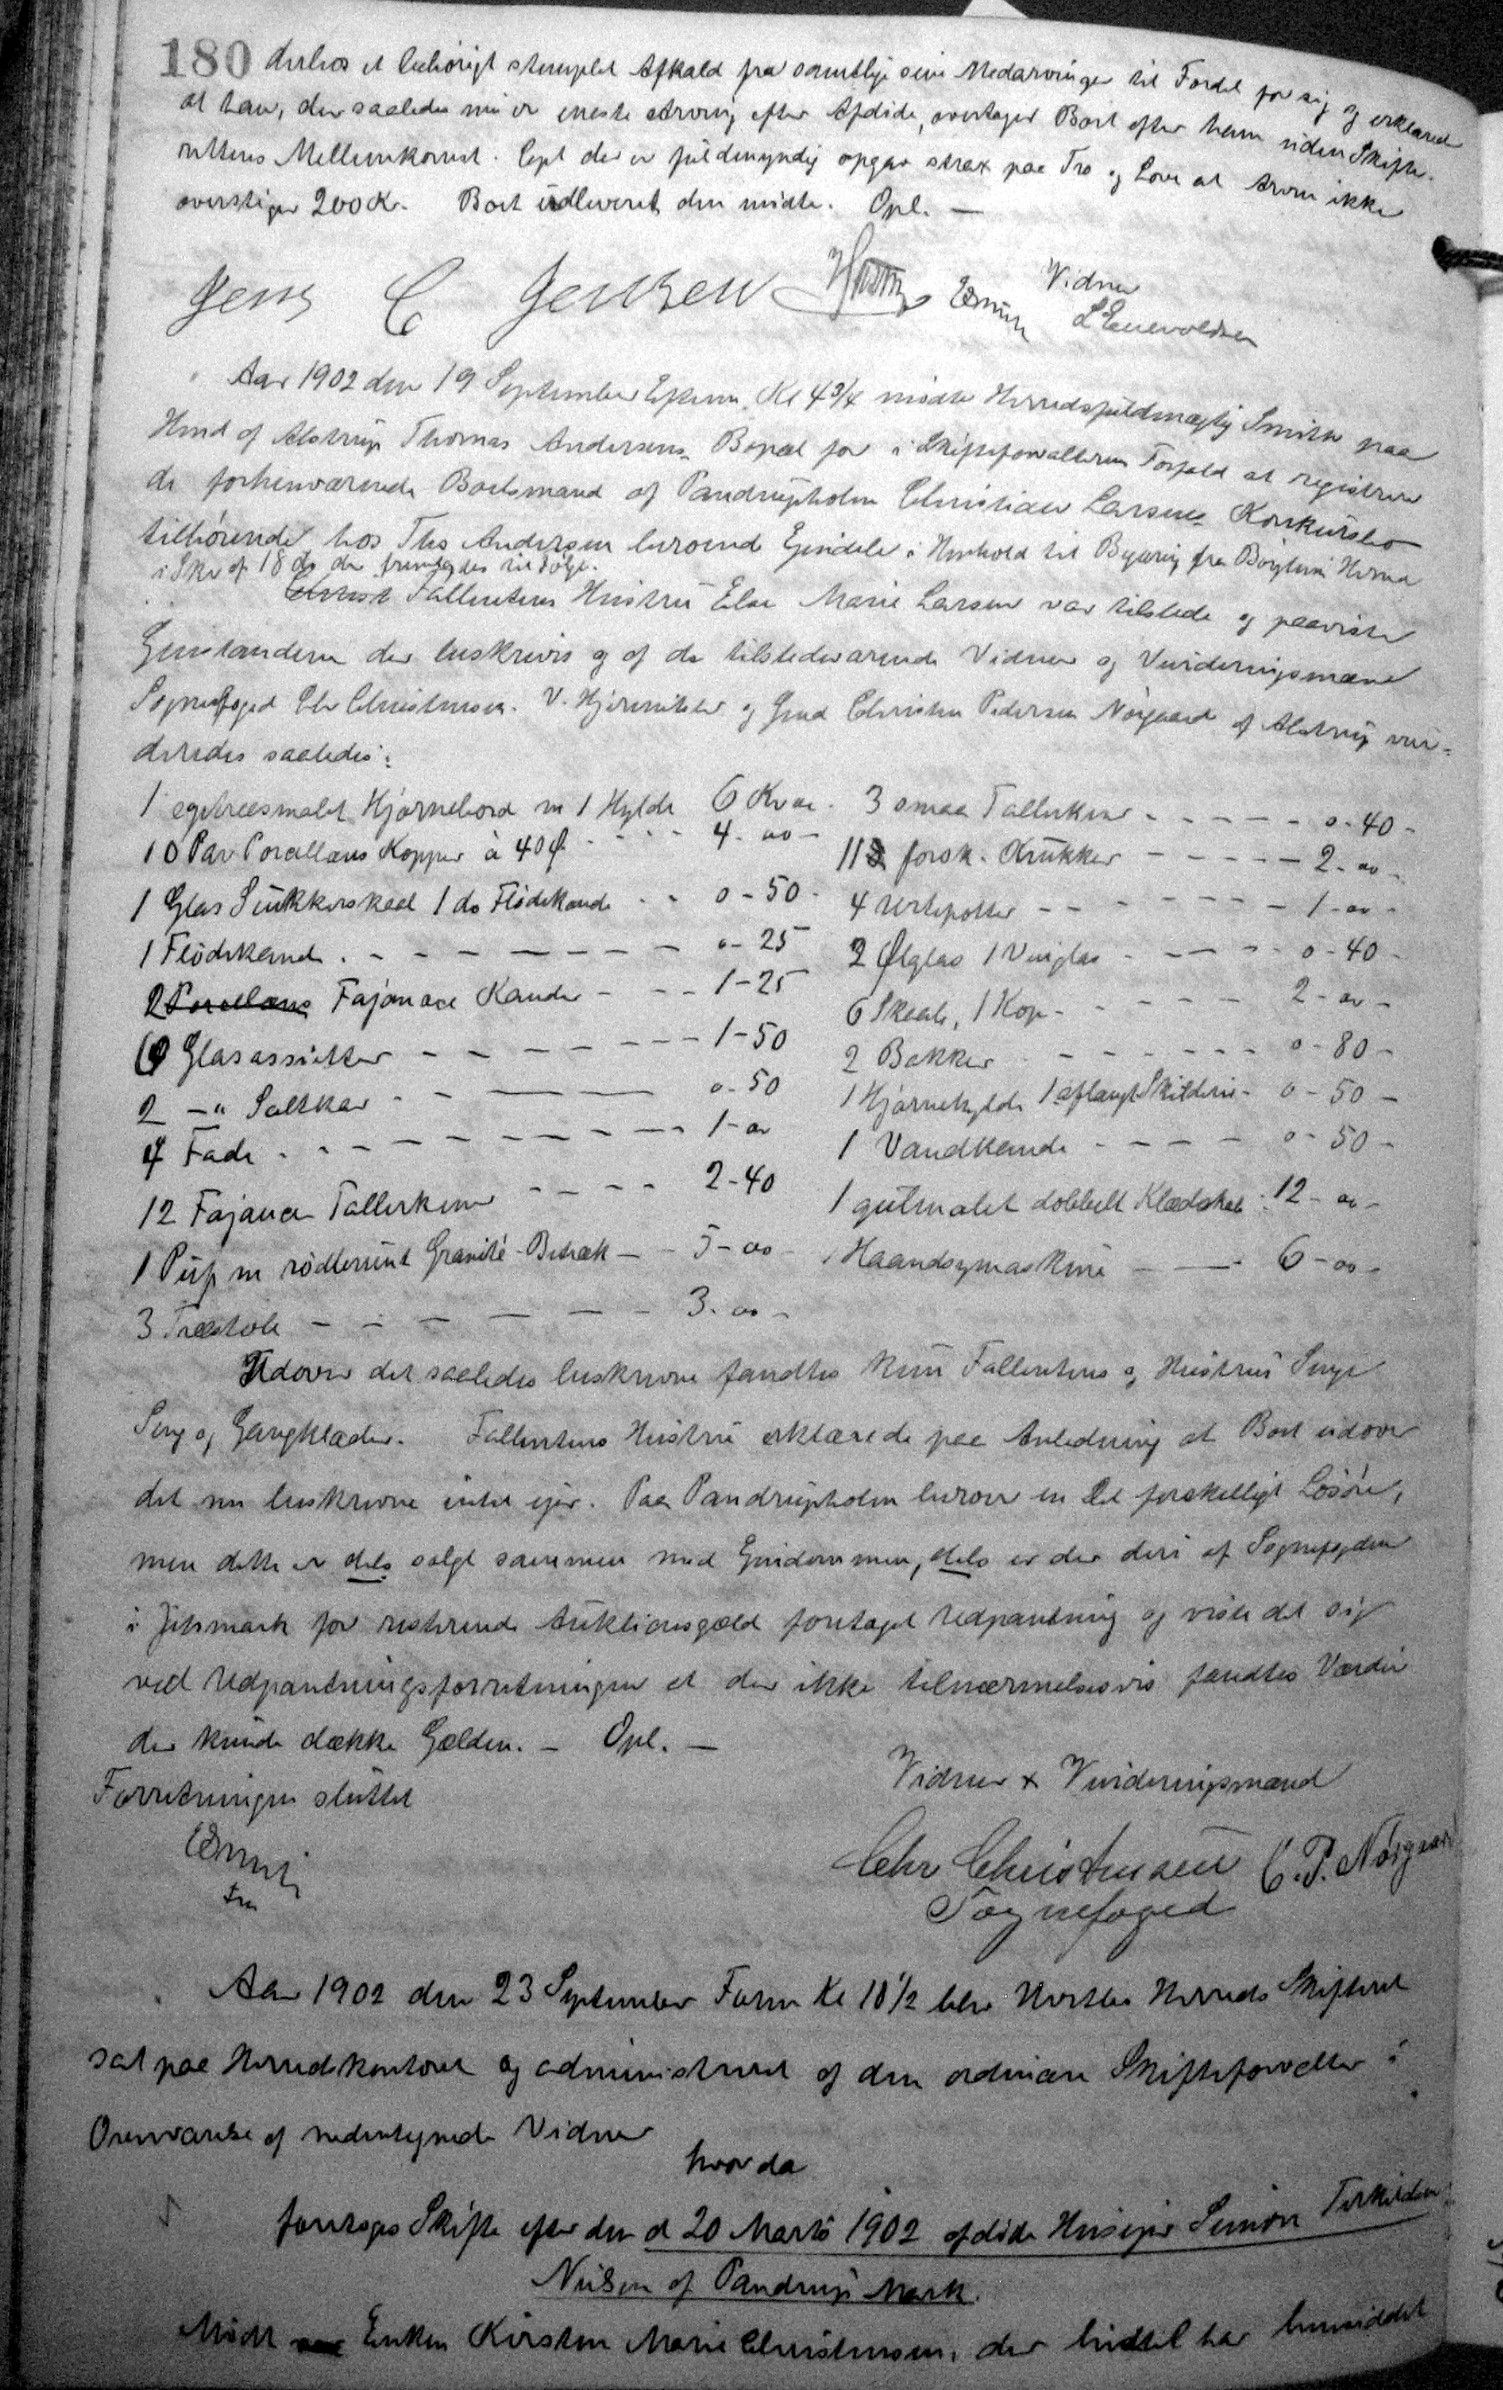 180 derhos et behörigt stemplet Afkald fra samtlige sine Medarvinger til Fordel for sig og erklæred
at han, der saaledes nu er eneste Arving efter Afdöde, overtager Boet efter ham uden Skifte-
rettens Mellemkomst. Cept der er fuldmyndig opgav strax paa Tro og Love at Arven ikke
overstiger 200 Kr. Boet udleveret den mödte. Opl. —
Jens C Jensen Vidner
LEnevoldsen
Aar 1902 den 19 September Efterm. Kl 4¾ mödte Herredsfuldmægtig Smith paa
Hmd af Alstrup Thomas Andersens Bopæl for i Skifteforvalterens Forfald at registrere
de forhenværende Boelsmand af Pandrupholm Christian Larsens Konkursbo
tilhörende hos Ths Andersen beroende Ejendele i Henhold til Begæring fra Börglum Herred
i Skr af 18 ds der fremlagdes til Fölge.
Fallentens Hustru Else Marie Larsen var tilstede og paaviste
Genstandene der beskrives og af de tilstedeværende Vidner og Vurderingsmænd
Sognefoged Chr Christensen V. Hjermitslev og Gmd Christen Pedersen Nörgaard af Alstrup vur-
deredes saaledes:
1 egetræesmalet Hjörnebord m 1 Hylde 6 Kr oo. 3 smaa Tallerkener - - - - - 0-40-
10 Par Porcellæns Kopper à 40 Ø - - - 4-oo- 11 forsk. Krukker - - - - - 2-oo-
1 Glas Sukkerskaal 1 do Flödekande - - 0-50- 4 Urtepotter - - - - - - 1-oo-
1 Flödekande - - - - - - - 0-25 2 Ølglas 1 Vinglas - - - - 0-40-
2 Porcellæns Fajance Kander - - - 1-25 6 Skaale, 1 Kop - - - - 2-oo-
6 Glasassietter - - - - - - - 1-50 2 Bakker - - - - - - 0-80-
2 -" Saltkar - - ——— 0-50 1 Hjörnehylde 1 aflangt Skilderi - 0-50-
4 Fade - - - - - - - - - 1-oo 1 Vandkande - - - - 0-50-
12 Fajance Tallerkener - - - - 2-40 1 gulmalet dobbelt Klædeskab - 12-oo-
1 Puf m rödbrunt Granité-Betræk - - 5-oo- 1 Haandsymaskine — — 6-oo-
3 Træstole - - - - - - 3-oo-
Udover det saaledes beskrevne fandtes kun Fallentens og Hustrus Senge
Seng og Gangklæder. Fallentens Hustru erklærede paa Anledning at Boet udover
det nu beskrevne intet ejer. Paa Pandrupholm beror en Del forskelligt Lösöre,
men dette er dels solgt sammen med Ejendommen, dels er der deri af Sognefogden
i Jetsmark for resterende Auktionsgæld foretaget Udpantning og viste det sig
ved Udpantningsforretningen at der ikke tilnærmelsesvis fandtes Værdier
der kunde dække Gælden. — Opl. —
Forretningen sluttet Vidner & Vurderingsmænd
Chr Christensen C. P. Nörgaard
Sognefoged
Aar 1902 den 23 September Form Kl 10½ blev Hvetbo Herreds Skifteret
sat paa Herredskontoret og administreret af den ordinære Skifteforvalter i
Overværelse af nedentegnede Vidner
hvor da
foretoges Skifte efter den d 20 Marts 1902 afdöde Husejer Simon Terkildsen
Nielsen af Pandrup Mark.
Mödt Enken Kirsten Marie Christensen, der hidtil har hensiddet